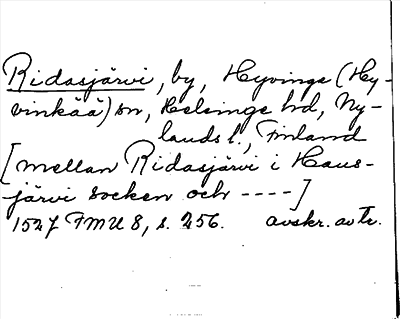 Ridasjärvi, by, Hyvinge (Hy-
vinkää) sn, Helsinge hd, Ny-
lands l., Finland
[mellan Ridasjärvi i Haus-
järvi socken och ----]
1527 FMU 8, s. 256. avskr. av tr.